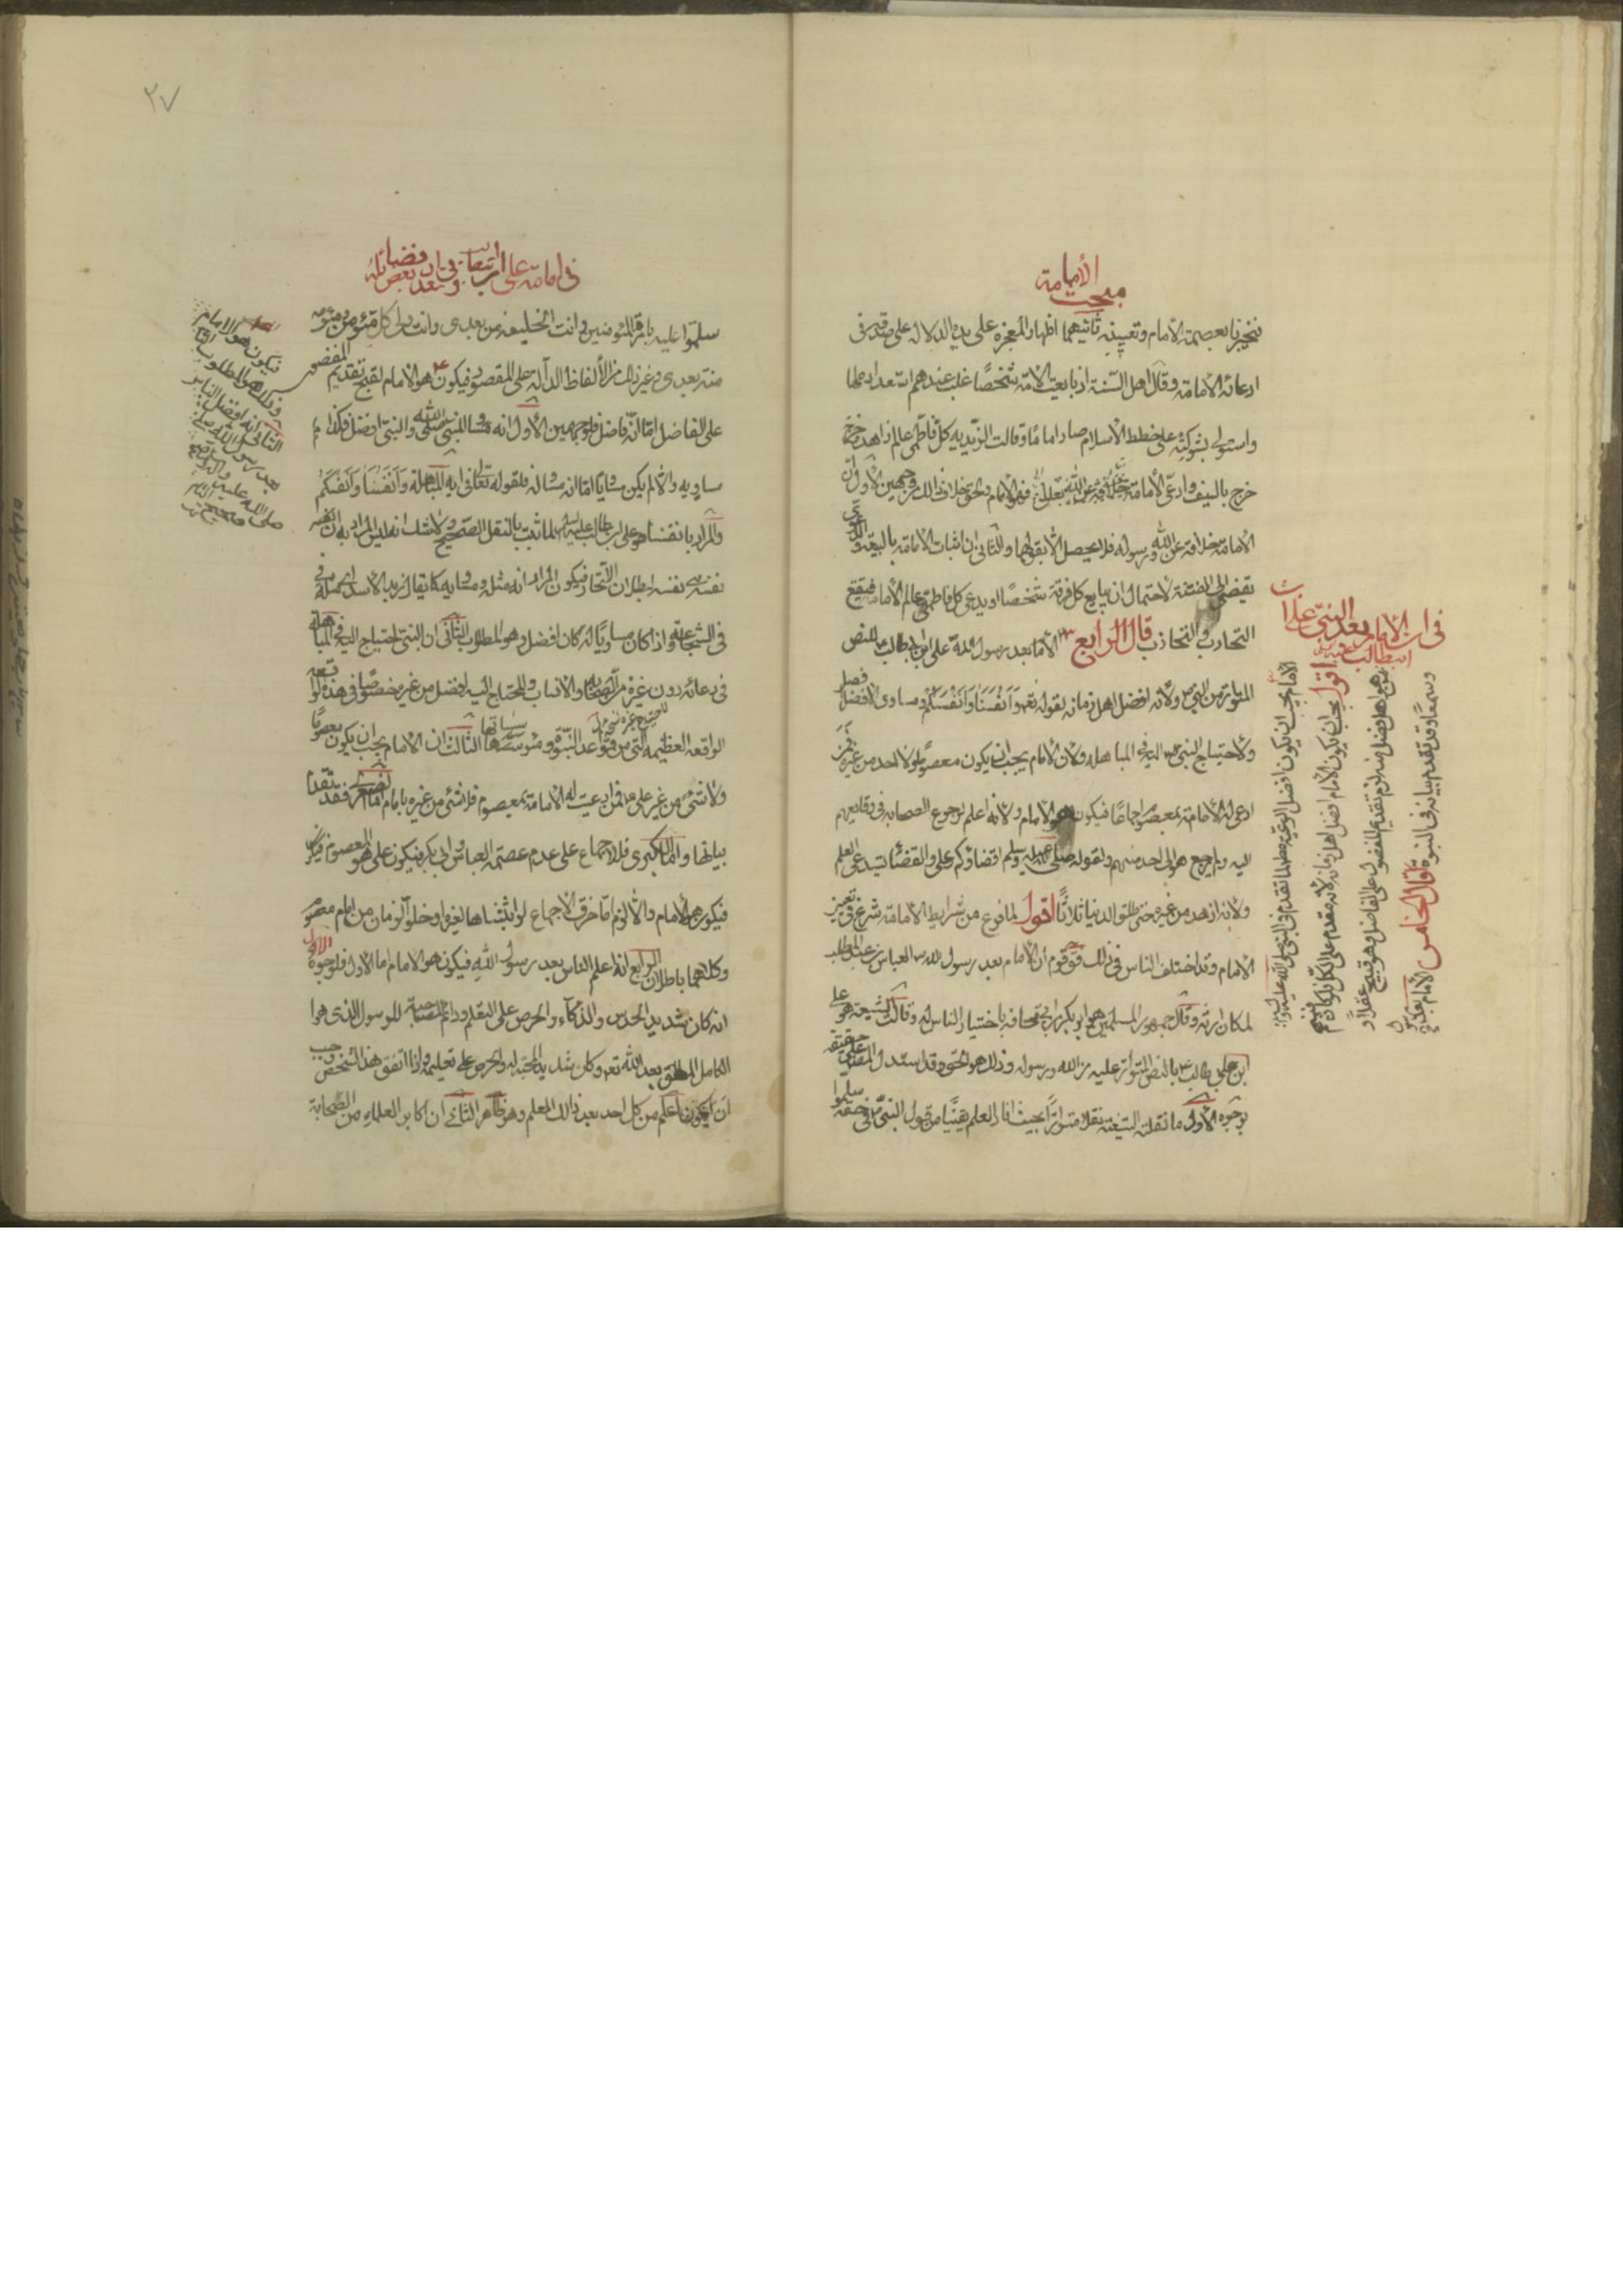 مبحث الأمامة
فيخبرنا بعصمة الأمام وتعيينه ثانيهما اظهار المعجزة على يده الدالة على صدقه في
ادعائه الأمامة وقال اهل السنة اذا بايعت الامة شخصًا غلب عندهم استعداده لها
واستولى بشوكته على خطط الأسلام صار امامًا وقالت الزيدية كل فاطمي عالم زاهد خرج
خرج بالسيف وادعى الأمامة فهو الامام والحق خلاف ذلك من وجهين الأول ان
الأمامة خلافة عن الله ورسوله فلا يحصل الا بقولهما والثاني ان اثبات الامامة بالبيعة والدعوى
يفضي الى الفتنة لاحتمال ان يبايع كل فرقة شخصًا او يدعي كل فاطمي عالم الأمامة فيقع
التحارب والتجاذب قال الرابع الأمام بعد رسول الله علي ابن ابيطالب للنص
المتواتر من النبي ص ولأنه افضل اهل زمانه لقوله تعه وَاَنْفُسَنَا وَاَنْفُسَكُمْ ومساوى الافضل افضل
ولاحتياج النبي ص اليه في المباهلة ولان الأمام يجب ان يكون معصومًا ولا احد من غيره ممن
ادعى له الأمامة بمعصوم اجماعًا فيكون هو الأمام ولانه اعلم لرجوع الصحابة في وقايعهم
اليه ولم يرجع هو الى احد منهم ولقوله صلى الله عليه وسلم اقضاكم علي والقضاء يستدعي العلم
ولانه ازهد من غيره حتى طلق الدنيا ثلاثًا اقول لما فرغ من شرايط الأمامة شرع في تعيين
الامام وقد اختلف الناس في ذلك فقال قوم أن الأمام بعد رسول الله ص العباس بن عبد المطلب
لمكان ارثه وقال جمهور المسلمين هو ابو بكر بن ابي قحافة باختيار الناس له وقالت الشيعة هو علي
ابن ابي طالب ع بالنص المتواتر عليه من الله ورسوله وذلك هو الحق وقد استدل المصنف على حقيقته
بوجوه الأول ما نقلته الشيعة نقلا متواترًا بحيث افاد العلم يقينًا من قول النبي ص في حقه سلموا
في ان الامام بعد النبي علي ابن ابيطالب
الأمام يجب ان يكون افضل الرعية مطلقا لما تقدم في النبي صلى الله عليه واله
اقول يجب ان يكون الأمام افضل اهل زمانه لانه مقدم على الكل فلو كان فيهم
من هو افضل منه لزم تقديم المفضول على الفاضل وهو قبيح عقلًا و
وسمعًا وقد تقدم بيانه في النبوة قال الخامس الأمام بعد رسول
٢٧
في امامة علي ابن ابيطالب وفي ان وتعد بعض فضائله
سلموا عليه بامرة المؤمنين وانت الخليفة من بعدي وانت ولي كل مؤمن ومؤمنة
بعدي وغير ذلك من الألفاظ الدالة على المقصود فيكون هو الامام لقبح تقديم المفضول
على الفاضل اما انه فاضل فلوجهين الأول انه مساو للنبي صلى الله والنبي افضل فكذا
مساويه والا لم يكن مساويًا اما انه مساو له فلقوله تعالى في اية المباهلة وَاَنْفُسَنَا وَاَنْفُسَكُمْ
والمراد بانفسنا هو علي ابن ابيطالب عليه السلام لما ثبت بالنقل الصحيح ولا شك انه ليس المراد به ان نفسه
نفسه لبطلان الأتحاد فيكون المراد انه مثله ومساويه كما يقال زيد الأسد اى مثله
في الشجاعة واذا كان مساويًا له كان افضل وهو المطلوب الثاني ان النبي احتياج اليه في المباهلة
في دعائه دون غيره من الصحابة والانساب والمحتاج اليه افضل من غيره خصوصًا في هذه
الواقعة العظيمة التي من قواعد النبوة ومؤسساتها الثالث ان الامام يجب ان يكون معصومًا
ولا شئ من غير علي ممن ادعيت له الأمامة بمعصوم فلا شئ من غيره بامام اما الصغرى فقد تقدم
بيانها واما الكبرى فللاجماع على عدم عصمة العباس وابي بكر فيكون علي هو المعصوم
فيكون هو الأمام والا لزم اما خرق الأجماع لو اثبتناها لغيره او خلو الزمان من امام معصوم
وكلاهما باطلان الرابع انه اعلم الناس بعد رسول الله فيكون هو الامام اما الأول فلوجوه الأول
انه كان شديد الحدس والذكاء والحرص على التعلم ودائم المصاحبة للرسول الذى هو
الكامل المطلق بعد الله تعه وكان شديد المحبة له والحرص على تعليمه واذا اتفق هذا الشخص وجب
ان يكون اعلم من كل احد بعد ذالك المعلم وهو ظاهر الثاني ان اكابر العلماء من الصحابة
فيكون هو الامام
وذلك هو المطلوب اما
الثاني انه افضل الناس
بعد رسول الله
صلى الله عليه واله